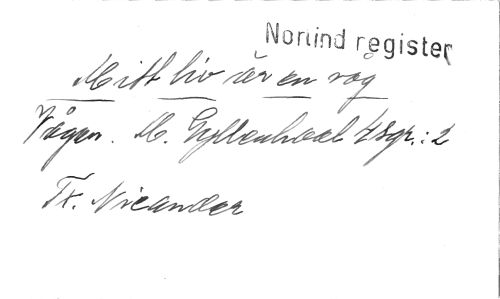 Norlind register
Mitt liv är en våg
Vågen. M. Gyllenhaal 4 Sgr.: 2
Tk. Nicander